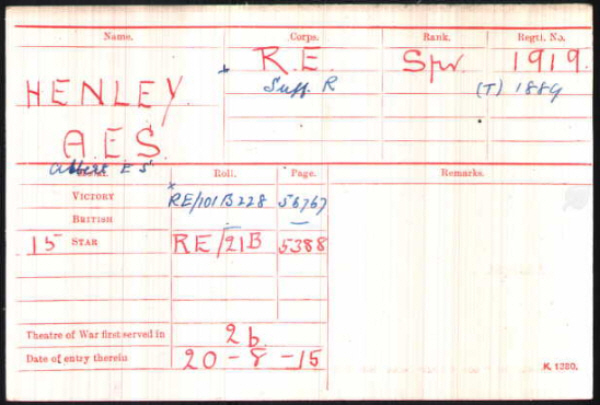 Name. Corps. Rank. Regtl. No.
HENLEY R.E. Spr. 1919.
Suff. R (T) 1889
A.E.S.
Albert E S
Roll. Page. Remarks.
VICTORY RE/101B228 56767
BRITISH
15 STAR RE/21B 5388
Theatre of War first served in 2b.
Date of entry therein 20-8-15
K 1380.